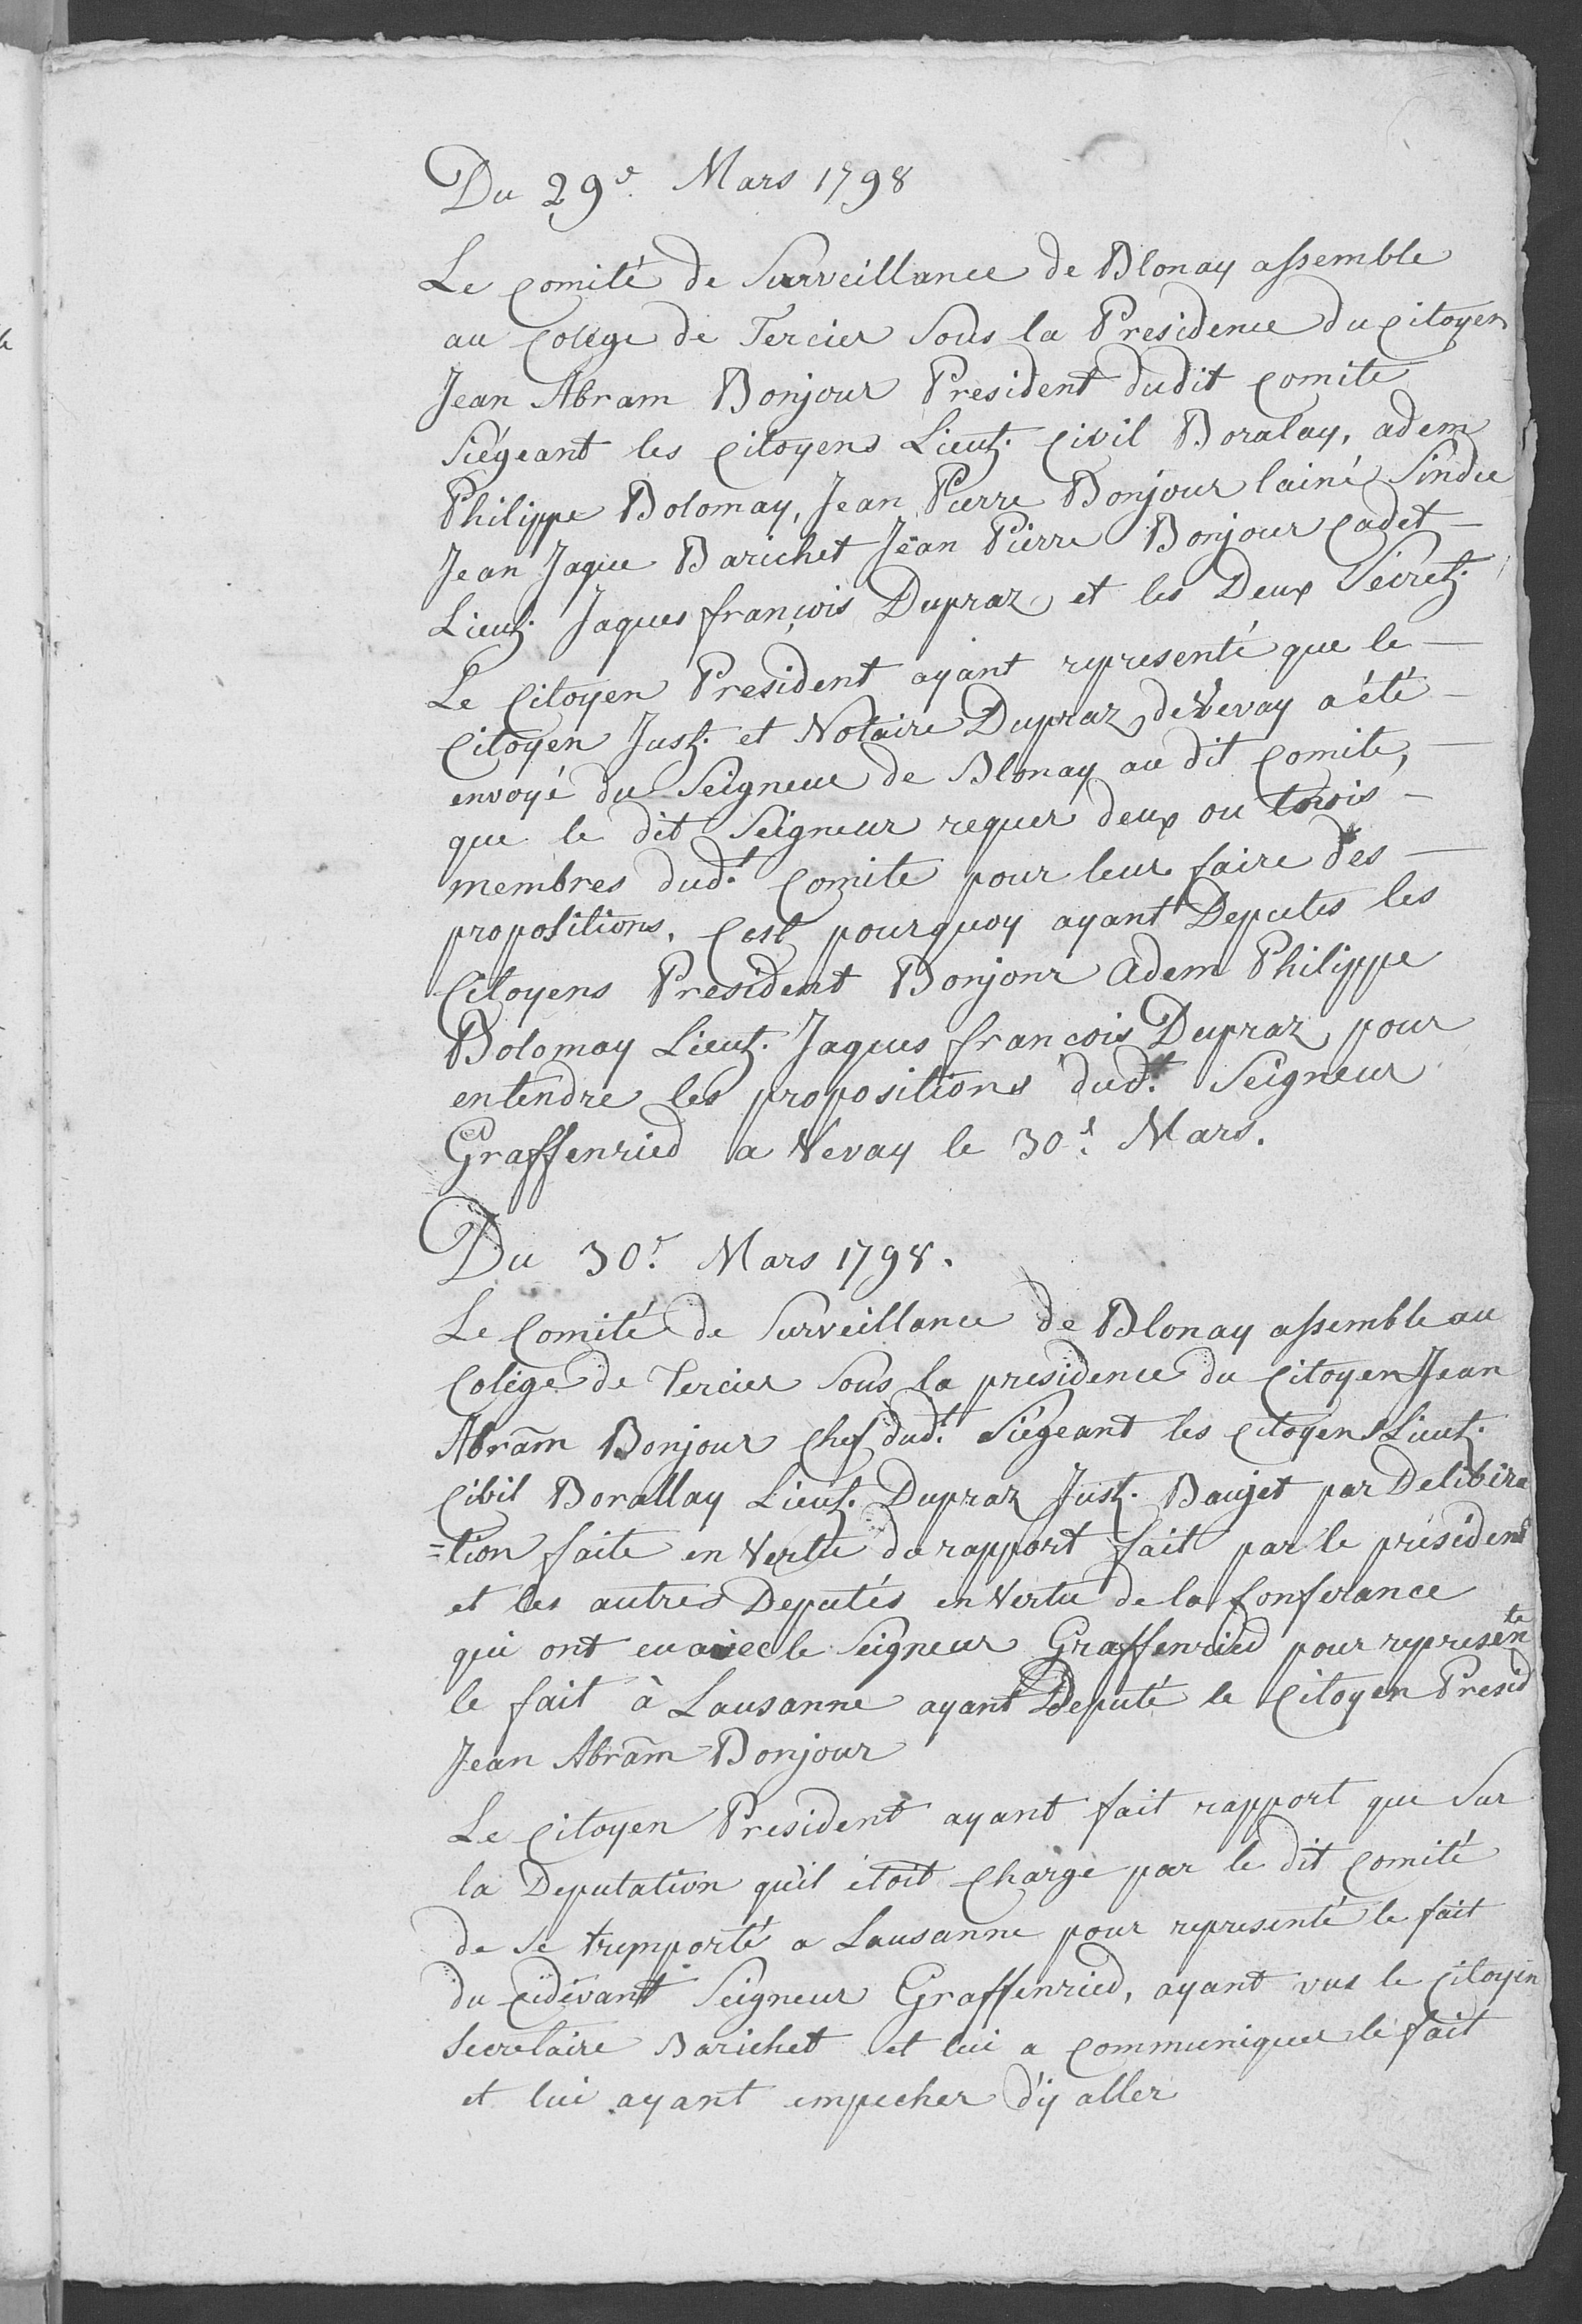 Du 29.e Mars 1798
Le Comité de Surveillance de Blonay assemble
au Colége de Tercier Sous la Presidence du Citoyen
Jean Abram Bonjour President dudit Comite
Siégeant les Citoyens Lieut. Civil Boralay, adem
Philippe Bolomay, Jean Pierre Bonjour lainé Sindic
Jean Jaque Barichet Jean Pierre Bonjour Cadet —
Lieut. Jaques françois Dupraz et les Deux Sécret.
Le Citoyen President ayant representé que le —
Citoyen Just. et Notaire Dupraz de Vevay a été —
envoyé du Seigneur de Blonay au dit Comite, —
que le dit Seigneur requer deux ou trois —
membres dud.t Comite pour leur faire des —
propositions. C'est pourquoy ayant Deputes les
Citoyens President Bonjour Adem Philippe
Bolomay Lieut. Jaques francois Dupraz pour
entendre les propositions dud.t Seigneur
Graffenried a Vevay le 30.e Mars.
Du 30.e Mars 1798.
Le Comité de Surveillance de Blonay assemble au
Colége de Tercier Sous la presidence du Citoyen Jean
Abram Bonjour Chef dud.t Siégeant les Citoyens Lieut.
Civil Borallay Lieut. Dupraz Just. Baujet par Delibéra
=tion faite en Vertu du rapport fait par le président
et les autres Deputés en Vertu de la Conferance
qui ont eu avec le Seigneur Graffenried pour represente
le fait à Lausanne ayant Deputé le Citoyen Presid
Jean Abram Bonjour
Le Citoyen President ayant fait rapport que Sur
la Deputation qu'il étoit Charge par le dit Comité
de se tremporté a Lausanne pour representé le fait
du Cidevant Seigneur Graffenried, ayant vus le Citoyen
Secretaire Barichet et lui a Communiquer le fait
et lui ayant empecher d'y aller